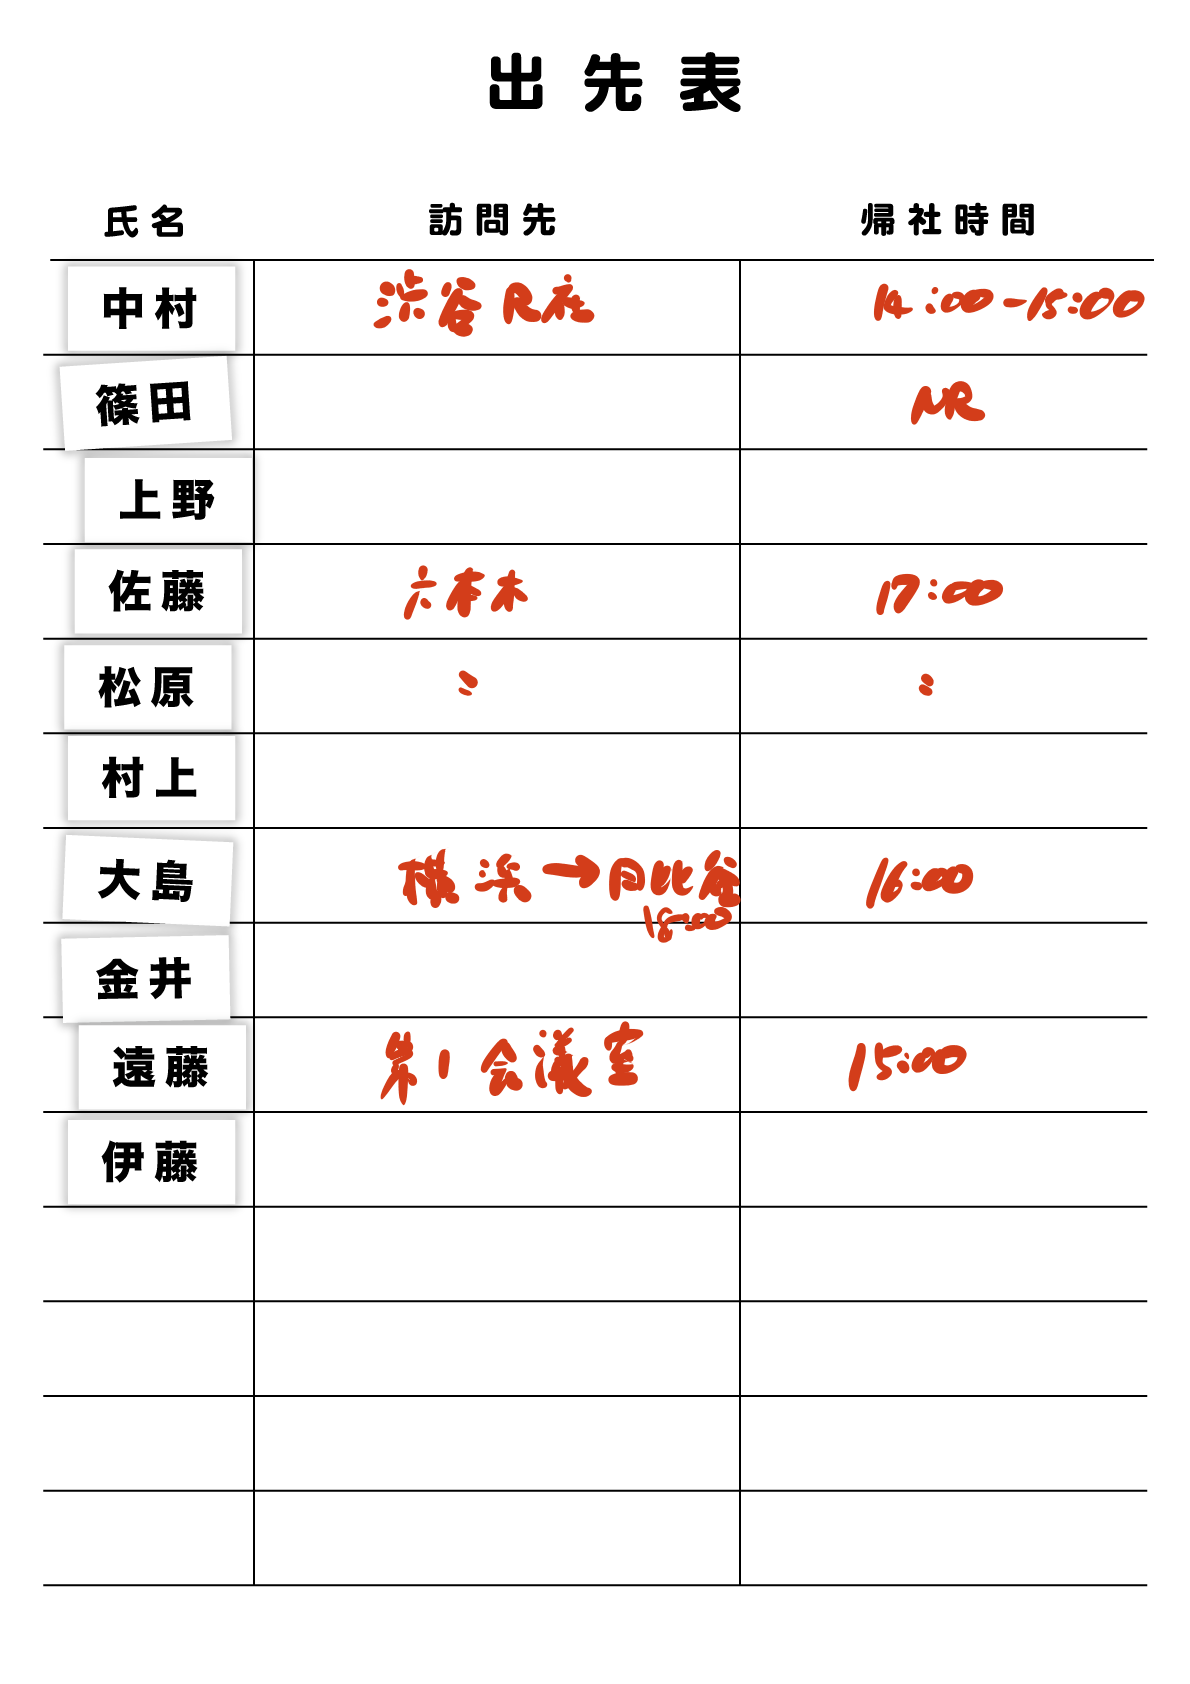 出先表
氏名 訪問先 帰社時間
中村 渋谷 R座 14:00-15:00
篠田 NR
上野
佐藤 六本木 17:00
松原 〃 〃
村上
大島 横浜→日比谷 16:00
18:00
金井
遠藤 第1会議室 15:00
伊藤